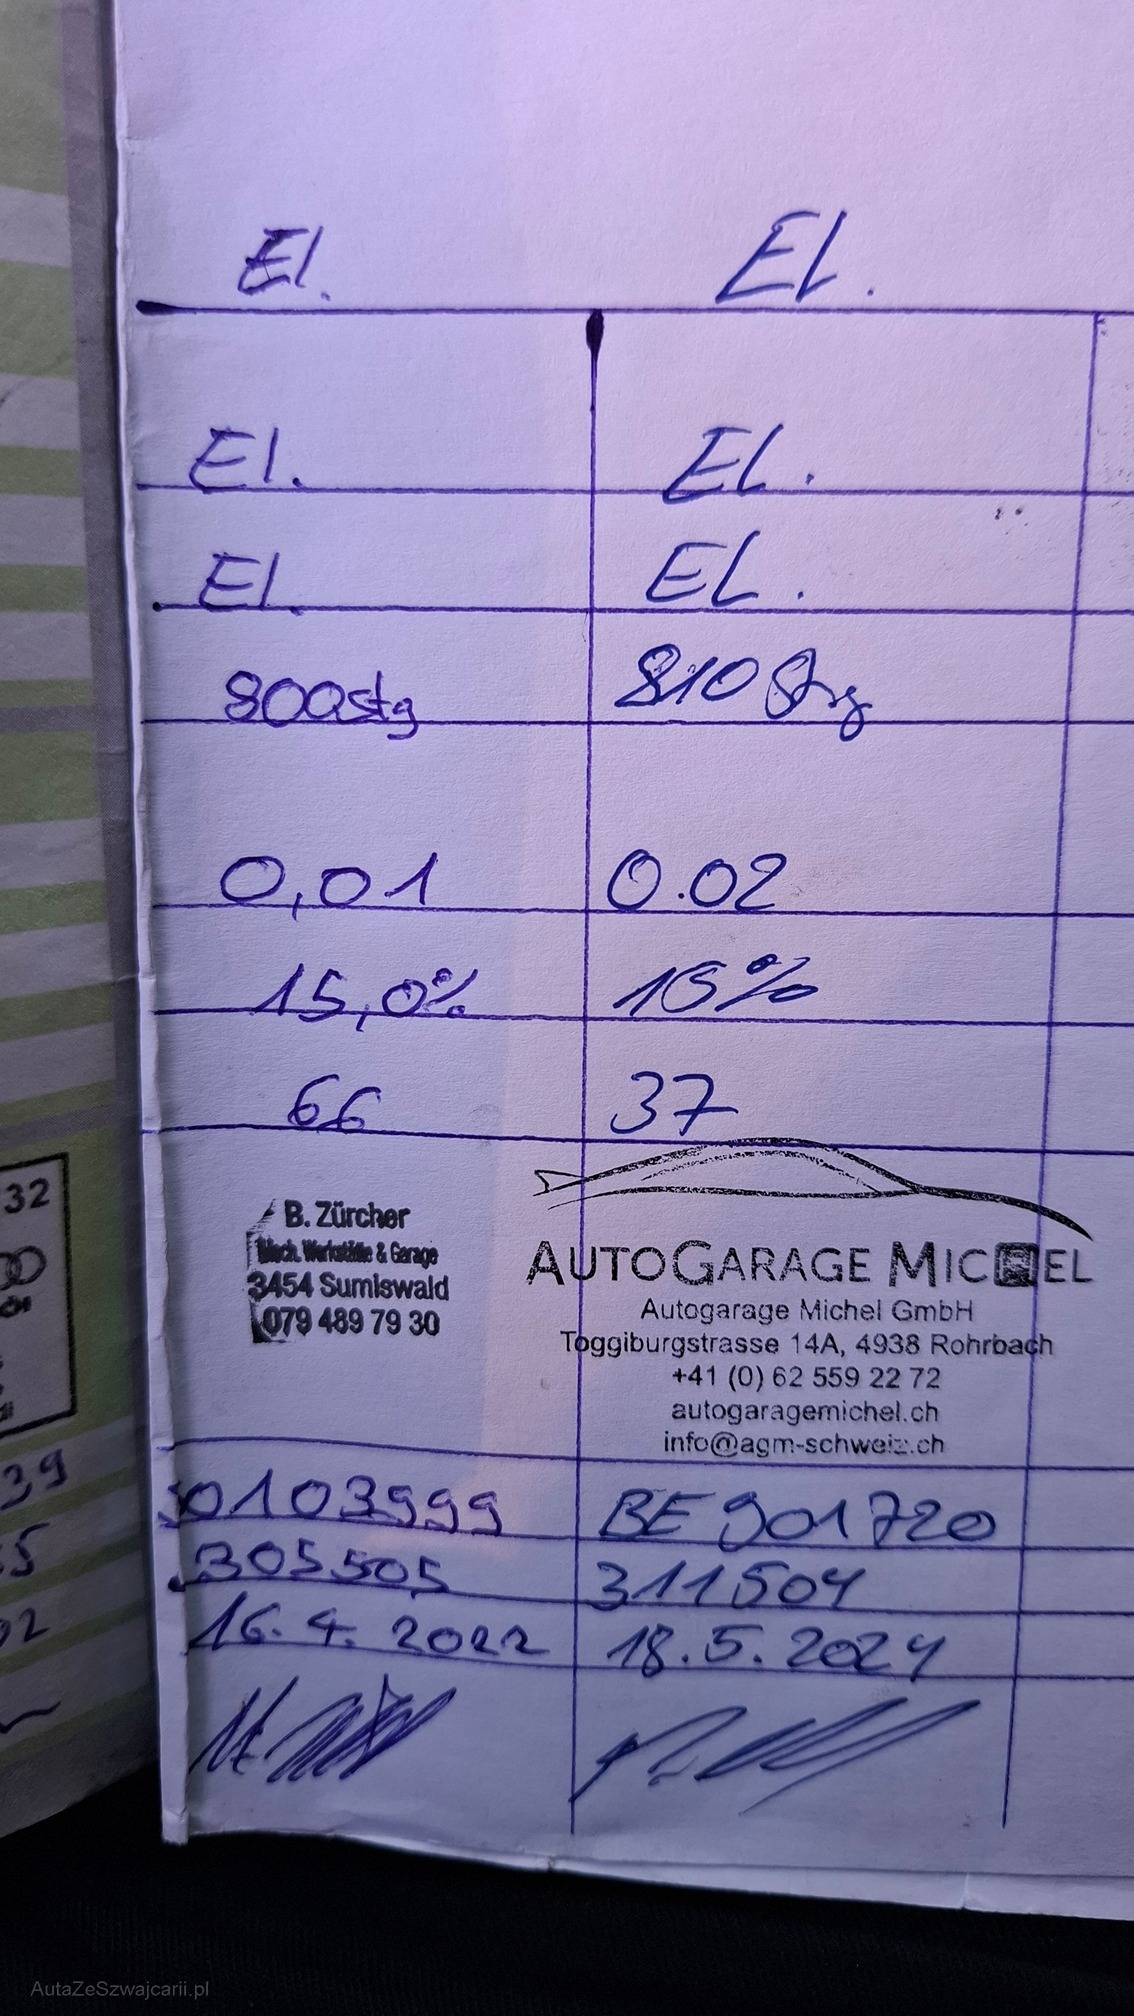 El.
El.
El.
El.
El.
EL.
800stg
810 Stg
0,01
0.02
15,0%
15%
66
37
B. Zürcher
Mech. Werkstätte & Garage
3454 Sumiswald
079 489 79 30
AUTOGARAGE MICHEL
Autogarage Michel GmbH
Toggiburgstrasse 14A, 4938 Rohrbach
+41 (0) 62 559 22 72
autogaragemichel.ch
info@agm-schweiz.ch
0103999
BE 901720
305505
311504
16.4.2022
18.5.2024
32
39
5
02
AutaZeSzwajcarii.pl